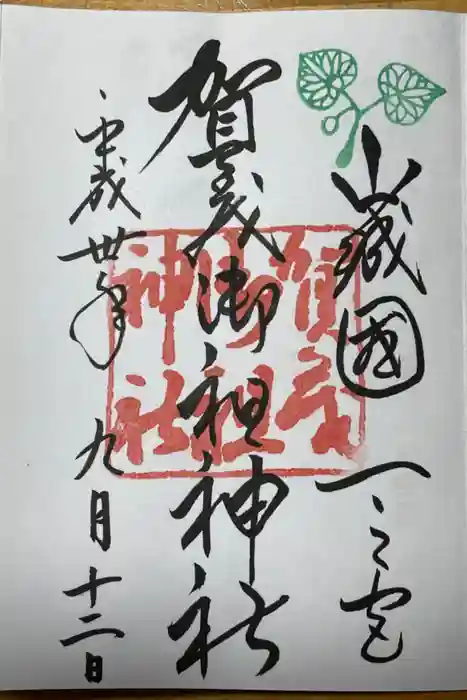 山城國一之宮
賀茂御祖神社
平成卅年九月十二日
賀茂
御祖
神社